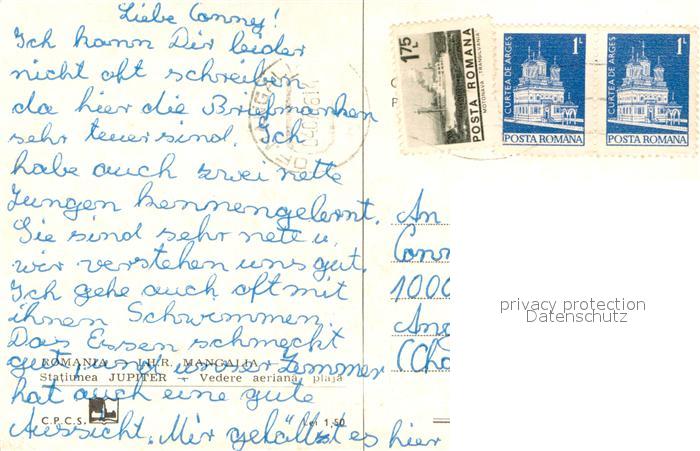 Liebe Conny!
Ich kann Dir leider
nicht oft schreiben
da hier die Briefmarken
sehr teuer sind. Ich
habe auch zwei nette
Jungen kennengelernt.
Sie sind sehr nett u.
wir verstehen uns gut.
Ich gehe auch oft mit
ihnen Schwimmen.
Das Essen schmeckt
gut, und unser Zimmer
hat auch eine gute
Aussicht. Mir gefällt es hier
ROMANIA - J.H.R. MANGALIA
Stațiunea JUPITER - Vedere aeriană, plajă
C.P.C.S.
Lei 1,50
1,75 L
POSTA ROMANA
MOTONAVA TRANSILVANIA
1L
CURTEA DE ARGES
POSTA ROMANA
1L
CURTEA DE ARGES
POSTA ROMANA
An
Conn
1000
privacy protection
Datenschutz